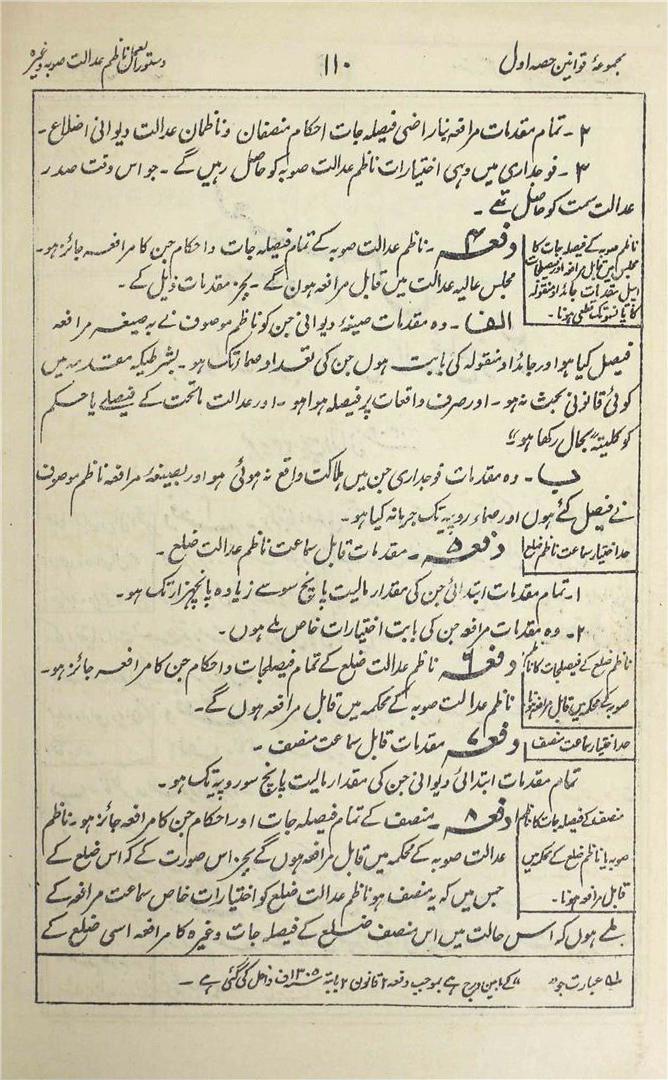 مجموعۂ قوانین حصہ اول
۱۱۰
دستورالعمل ناظم عدالت صوبہ وغیرہ
۲ - تمام مقدمات مرافعہ بناراضی فیصلہ جات احکام منصفان و ناظمان عدالت دیوانی اضلاع -
۳ - فوجداری میں وہی اختیارات ناظم عدالت صوبہ کو حاصل رہیں گے - جو اس وقت صدر
عدالت سمت کو حاصل تھے -
ناظم صوبہ کے فیصلہ جات کا
مجلس میں قابل مرافعہ اور فیصلجات
اپیل مقدمات جائداد منقولہ
کا تا سو تک قطعی ہونا -
دفعہ ۴ - ناظم عدالت صوبہ کے تمام فیصلہ جات و احکام جن کا مرافعہ جائز ہو -
مجلس عالیہ عدالت میں قابل مرافعہ ہون گے - بجز مقدمات ذیل کے -
الف - وہ مقدمات صیغۂ دیوانی جن کو ناظم موصوف نے بہ صیغہ مرافعہ
فیصل کیا ہو اور جائداد منقولہ کی بابت ہوں جن کی تعداد صمار تک ہو - بشرطیکہ مقدمہ میں
کوئی قانونی بحث نہ ہو - اور صرف واقعات پر فیصلہ ہوا ہو - اور عدالت ماتحت کے فیصلے یا حکم
کو کلیتہً بحال رکھا ہو "
ب - وہ مقدمات فوجداری جن میں ہلاکت واقع نہ ہوئی ہو اور بصیغۂ مرافعہ ناظم موصوف
نے فیصل کئے ہوں اور صمار روپیہ تک جرمانہ کیا ہو -
حد اختیار سماعت ناظم ضلع
دفعہ ۵ - مقدمات قابل سماعت ناظم عدالت ضلع -
۱ - تمام مقدمات ابتدائی جن کی مقدار مالیت پانچ سو سے زیادہ پانچہزار تک ہو -
۲ - وہ مقدمات مرافعہ جن کی بابت اختیارات خاص ملے ہوں -
ناظم ضلع کے فیصلجات کا ناظم
صوبہ کے محکمہ میں قابل مرافعہ ہونا
دفعہ ۶ ناظم عدالت ضلع کے تمام فیصلجات و احکام جن کا مرافعہ جائز ہو -
ناظم عدالت صوبہ کے محکمہ میں قابل مرافعہ ہوں گے -
حد اختیار سماعت منصف
دفعہ ۷ مقدمات قابل سماعت منصف -
تمام مقدمات ابتدائی دیوانی جن کی مقدار مالیت پانچ سو روپیہ تک ہو -
منصف کے فیصلہ جات کا ناظم
صوبہ یا ناظم ضلع کے محکمہ میں
قابل مرافعہ ہونا -
دفعہ ۸ - منصف کے تمام فیصلہ جات اور احکام جن کا مرافعہ جائز ہو - ناظم
عدالت صوبہ کے محکمہ میں قابل مرافعہ ہوں گے بجز اس صورت کے کہ اس ضلع کے
جس میں کہ یہ منصف ہو ناظم عدالت ضلع کو اختیارات خاص سماعت مرافعہ کے
ملے ہوں کہ اس حالت میں اس منصف ضلع کے فیصلہ جات وغیرہ کا مرافعہ اسی ضلع کے
عبارت جو " " کے مابین درج ہے بموجب دفعہ ۲ قانون ۲ بابتہ ۱۳۰۵ف داخل کی گئی ہے -